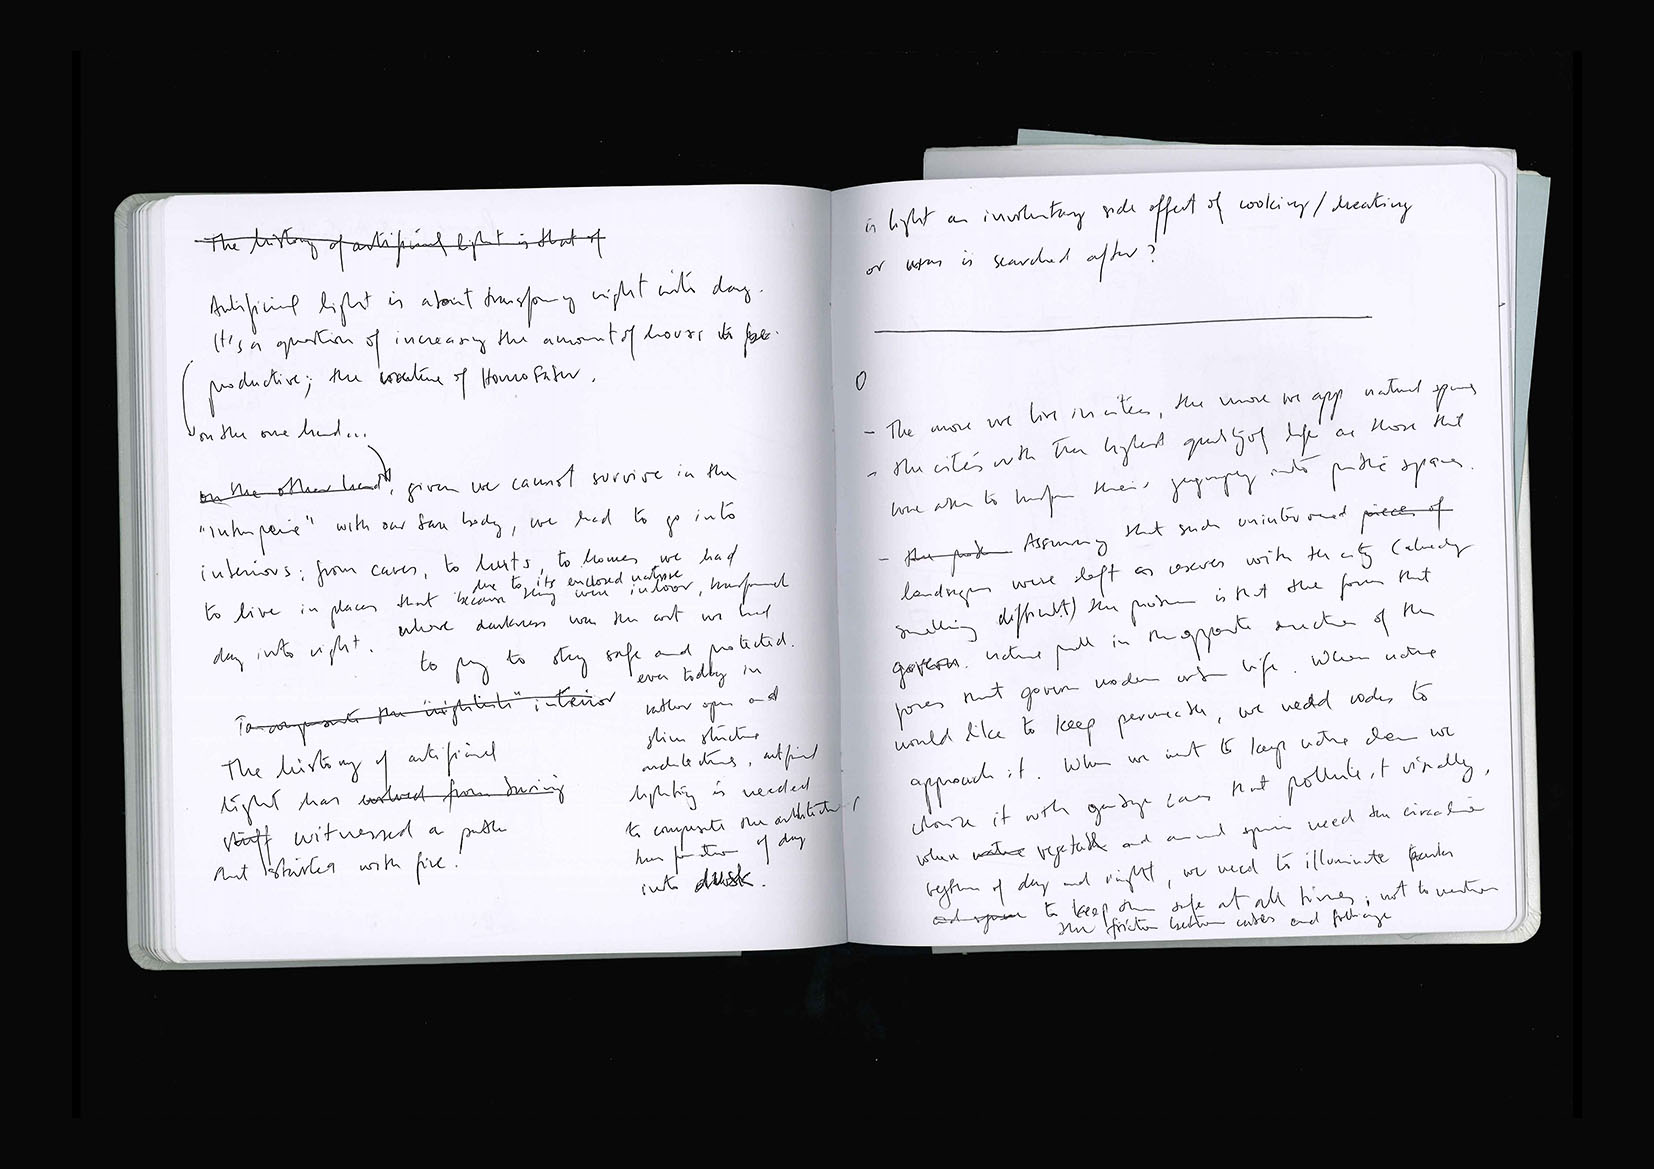 The history of artificial light is that of
Artificial light is about night into day.
It's a question of increasing the amount of hours to be
productive; the of Homo Faber.
on the one hand...
on the other hand, given we cannot survive in the
with our body, we had to go into
interiors; from caves, to huts, to homes we had
due to its enclosed nature
to live in places that because they were indoor, transformed
day into night. where darkness was the cost we had
to pay to stay safe and protected.
To the "nightlish" interior
The history of artificial
light has evolved from
stuff witnessed a path
that started with fire.
even today in
rather open and
slim structure
architectures, artificial
lighting is needed
to the architectural
of day
into dusk.
is light an involuntary side effect of cooking/heating
or was is searched after?
- The more we live in cities, the more we app natural spaces
- the cities with the highest quality of life are those that
were able to their geography into public spaces.
- the Assuming that such pieces of
landscapes were left as reserves with the city (already
difficult) the problem is that the forces that
govern nature pull in the opposite direction of the
forces that govern modern urban life. When nature
would like to keep permeable, we need to
approach it. When we want to keep nature clean we
it with garbage cans that pollute it visually,
when nature vegetable and animal need the circadian
rhythm of day and night, we need to illuminate
to keep them safe at all times; not to mention
the friction between and